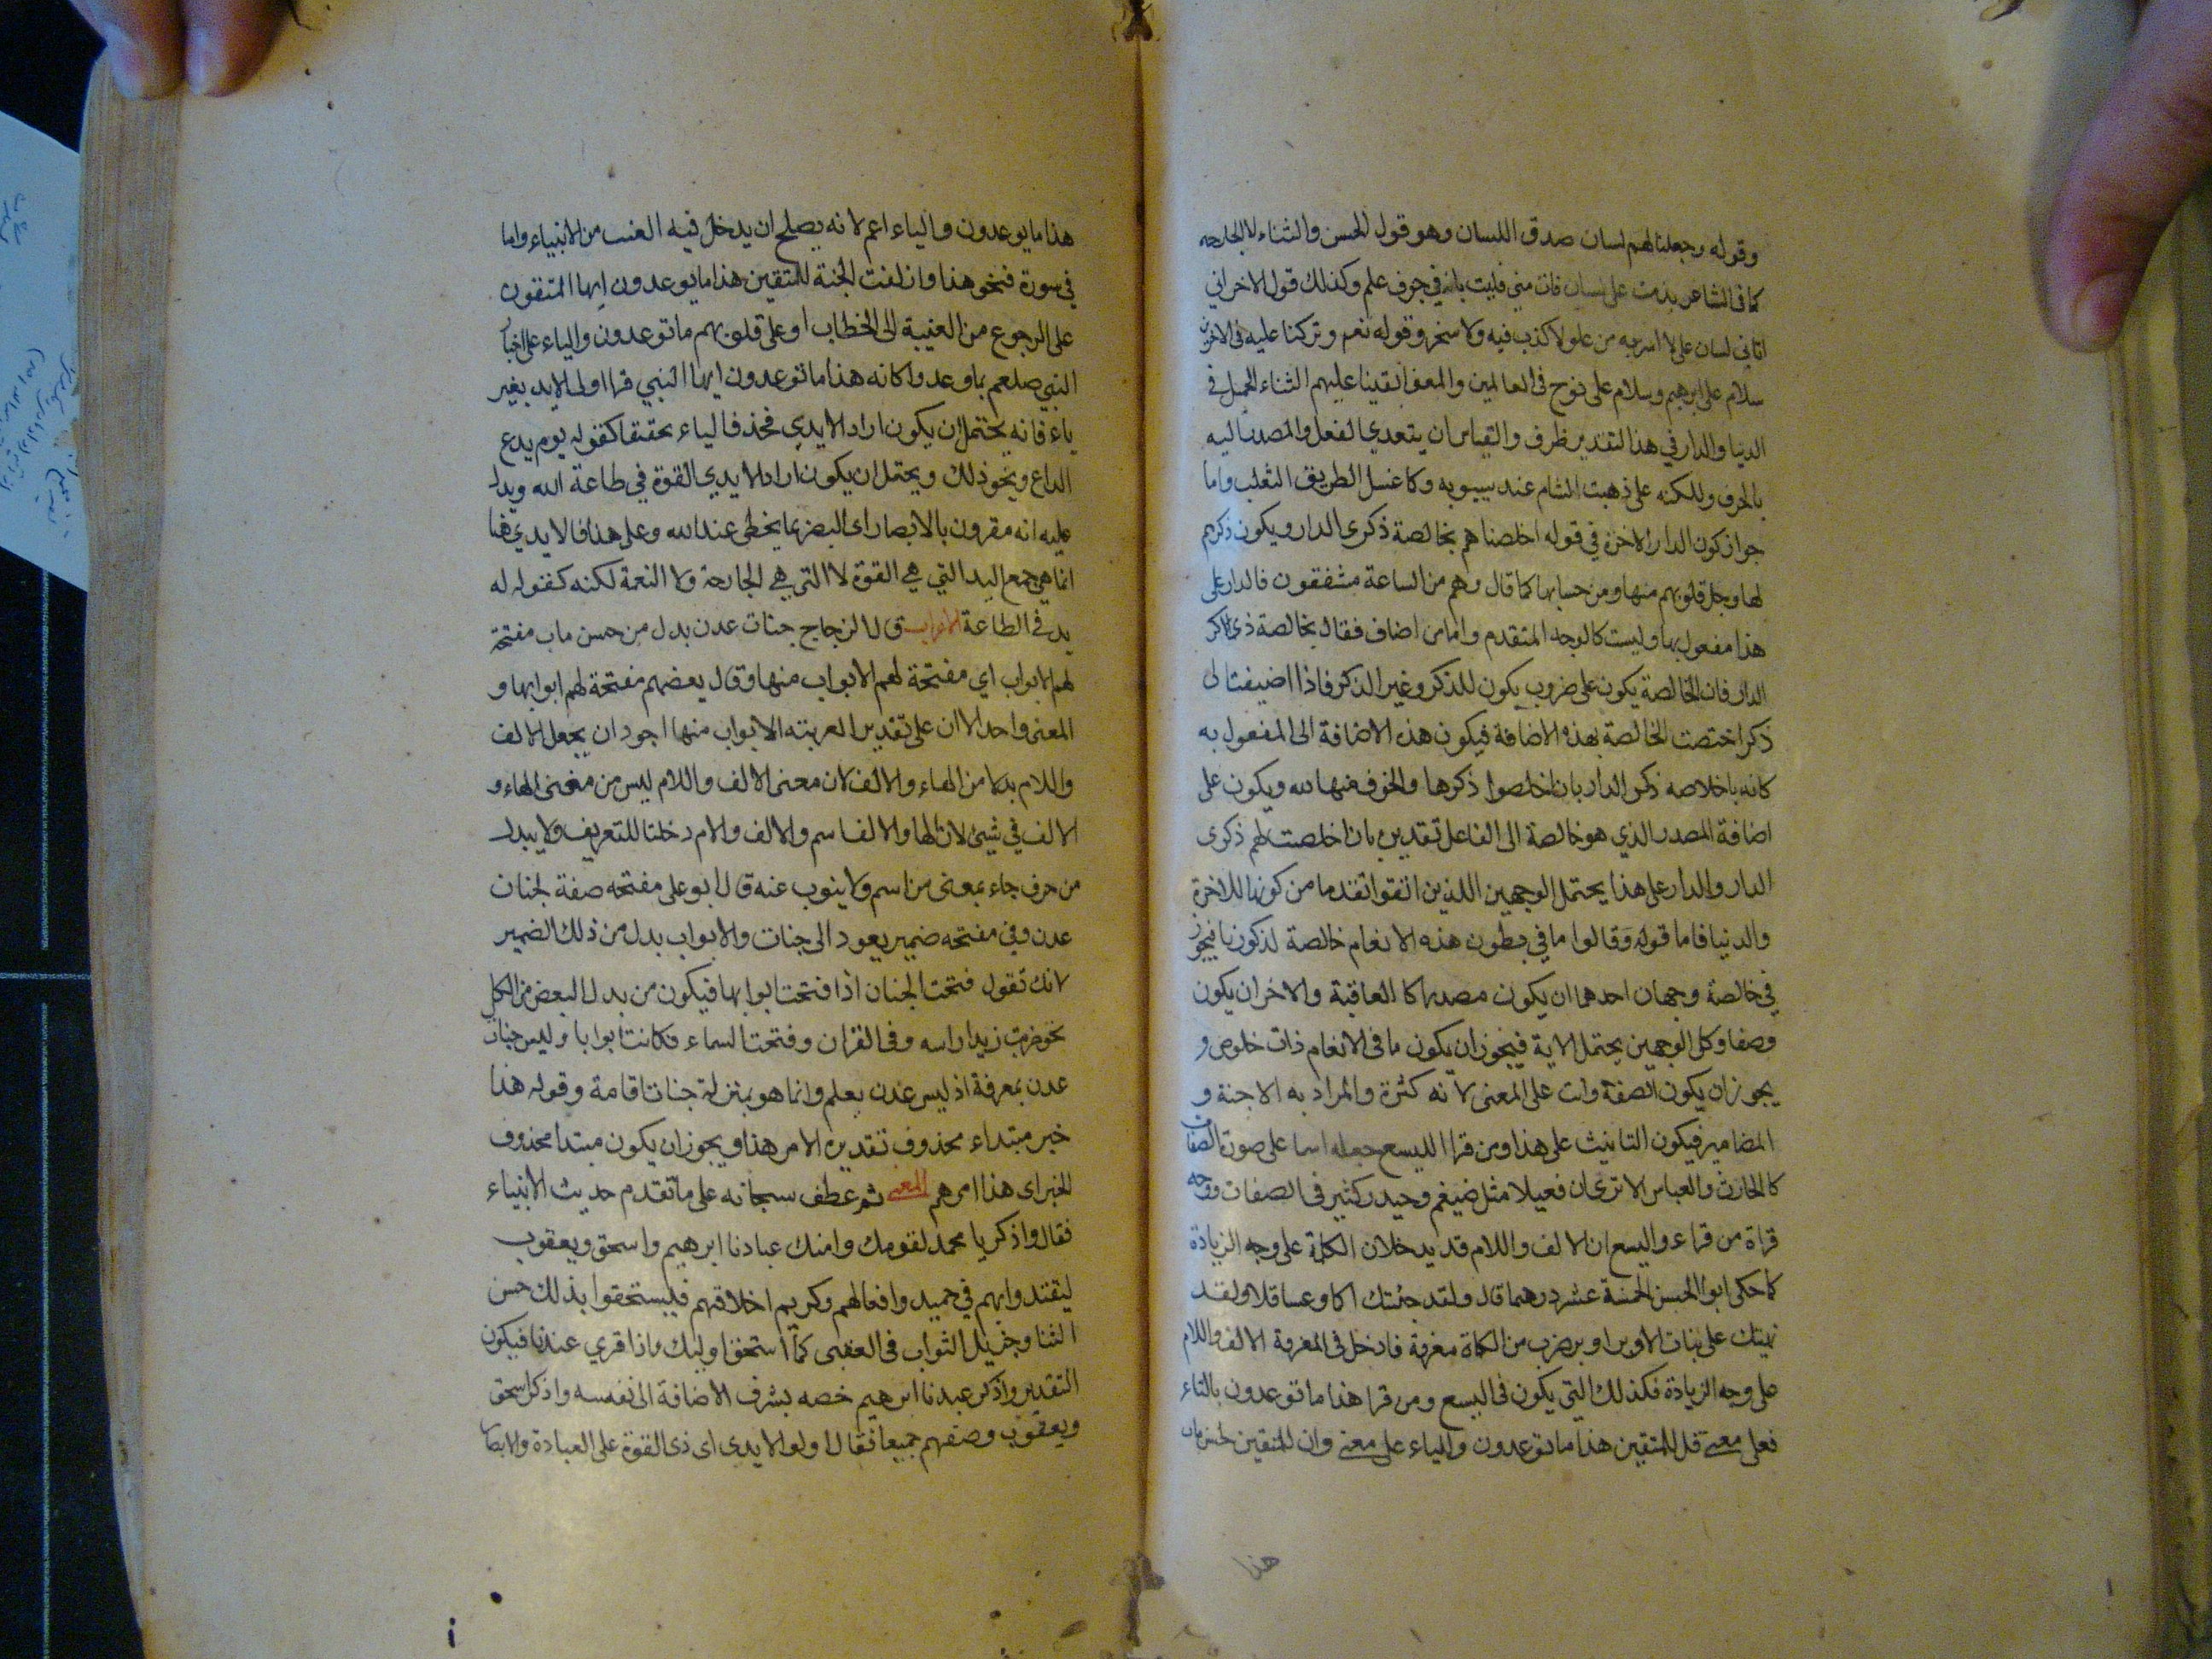 وقوله وجعلنا لهم لسان صدق اللسان وهو قول الحسن والثناء لا الجارحه
كما فى الشاعر ندمت على لسان فات منى فليت بانه في جوف علم وكذلك قول الاخر اني
اتاني لسان على لا اسر به من علو لا كذب فيه ولا سخر وقوله نعم وتركنا عليه فى الاخرين
سلام على ابرهيم وسلام على نوح فى العالمين والمعنى ابقينا عليهم الثناء الجميل فى
الدنيا والدار في هذا التقدير ظرف والقياس ان يتعدي الفعل والمصدر اليه
بالحرف ولكنه على ذهبت الشام عند سيبويه وكا عسل الطريق الثعلب واما
جواز كون الدار الاخرة في قوله اخلصناهم بخالصة ذكرى الدار ويكون ذكرهم
لها وجل قلوبهم منها ومن حسابها كما قال وهم من الساعة مشفقون فالدار على
هذا مفعول بها وليست كالوجه المتقدم واما من اضاف فقال بخالصة ذكرى
الدار فان الخالصة يكون على ضروب يكون للذكر وغير الذكر فاذا اضيفت الى
ذكر اختصت الخالصة بهذه الاضافة فيكون هذه الاضافة الى المفعول به
كانه باخلاصه ذكر الدار بان اخلصوا ذكرها والخوف منها لله ويكون على
اضافة المصدر الذي هو خالصة الى الفاعل تقديره بان اخلصت لهم ذكرى
الدار والدار على هذا يحتمل الوجهين اللذين اتقوا تقدما من كونها للاخرة
والدنيا فاما قوله وقالوا ما في بطون هذه الانعام خالصة لذكورنا فيجوز
في خالصة وجهان احدهما ان يكون مصدرا كا العاقبة والاخر ان يكون
وصفا وكل الوجهين يحتمل الاية فيجوز ان يكون ما فى الانعام ذات خلوص و
يجوز ان يكون الصفة وانث على المعنى لانه كثرة والمراد به الاجنة و
المضامير فيكون التانيث على هذا ومن قرا الليسع جعله اسما على صورة الصفات
كالحارث والعباس الا ترى ان فعيلا مثل ضيغم وحيدر كثير فى الصفات ووجه
قراة من قراء واليسع ان الالف واللام قد يدخلان الكلمة على وجه الزيادة
كما حكى ابوا الحسن الخمسة عشر درهما قال ولقد جنيتك اكموا وعساقلا ولقد
نهيتك على بنات الاوبر اوبر ضرب من الكماة معرفة فادخل فى المعرفة الالف واللام
على وجه الزيادة فكذلك التي يكون فى اليسع ومن قرا هذا ما توعدون بالتاء
فعلى معنى قل للمتقين هذا ما توعدون والياء على معنى وان للمتقين لحسن ماب
هذا
هذا ما يوعدون والياء اعم لانه يصلح ان يدخل فيه الغيب من الانبياء واما
في سورة ق نحو هذا وازلفت الجنة للمتقين هذا ما يوعدون ايها المتقون
على الرجوع من الغيبة الى الخطاب او على قلت بهم ما توعدون والياء على اخبار
النبي صلعم بما وعدوا كانه هذا ما توعدون ايها النبي قرا اولى الايد بغير
ياء فانه يحتمل ان يكون اراد الايدي فحذف الياء تخفيفا كقوله يوم يدع
الداع ونحو ذلك ويحتمل ان يكون اراد الايدي القوة في طاعة الله ويدل
عليه انه مقرون بالابصار اى البصر بما يحظى عند الله وعلى هذا فالايدي هنا
انما هي جمع اليد التي هي القوة لا التى هي الجارحة ولا النعمة لكنه كقوله له
يد فى الطاعة الاعراب قال الزجاج جنات عدن بدل من حسن ماب مفتحة
لهم الابواب اي مفتحة لهم الابواب منها وقال بعضهم مفتحة لهم ابوابها و
المعنى واحد الا ان على تقدير العربية الابواب منها اجود ان يجعل الالف
واللام بدلا من الهاء والالف لان معنى الالف واللام ليس من معنى الهاء و
الالف في شيئ لان الها والالف اسم والالف والام دخلتا للتعريف ولا يبدل
من حرف جاء بمعنى من اسم ولا ينوب عنه قال ابو على مفتحه صفة لجنات
عدن وفي مفتحه ضمير يعود الى جنات والابواب بدل من ذلك الضمير
لانك تقول فتحت الجنان اذا فتحت ابوابها فيكون من بدل البعض من الكل
نحو ضربت زيدا راسه وفى القران وفتحت السماء فكانت ابوابا وليس جنات
عدن بمعرفة اذ ليس عدن بعلم وانما هو بمنزلة جنات اقامة وقوله هذا
خبر مبتداء محذوف تقديره الامر هذا ويجوز ان يكون مبتدا محذوف
الخبر اى هذا امرهم المعنى ثم عطف سبحانه على ما تقدم حديث الانبياء
فقال واذكر يا محمد لقومك وامتك عبادنا ابرهيم واسحق ويعقوب
ليقتدوا بهم في حميد وافعالهم وكريم اخلاقهم فليستحقوا بذلك حسن
الثنا وجزيل الثواب فى العقبى كما استحق اوليك واذا قري عبدنا فيكون
التقدير واذكر عبدنا ابرهيم خصه بشرف الاضافة الى نفسه واذكر اسحق
ويعقوب وصفهم جميعا فقال اولو الايدي اى ذى القوة على العبادة والابصار